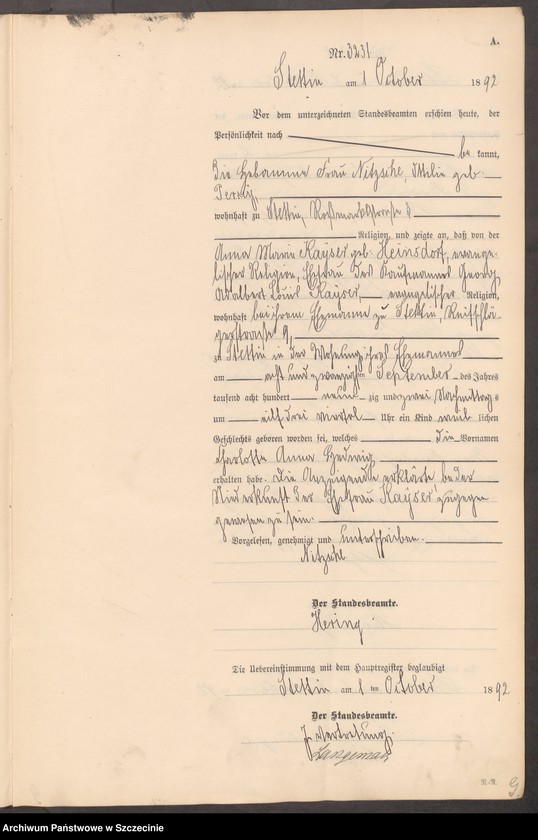 A.
Nr. 3231
Stettin am 1 October 1892
Vor dem unterzeichneten Standesbeamten erschien heute, der
Persönlichkeit nach
be kannt,
die Hebamme Frau Nitzschl, Ottilie geb.
wohnhaft zu Stettin, Roßmarktstrasse
Religion, und zeigte an, daß von der
Anna Marie Kayser geb. Heinsdorf, evange-
lischer Religion, Ehefrau des Kaufmannes Georg
Adalbert Louis Kayser, evangelischer Religion,
wohnhaft bei ihrem Ehemanne zu Stettin, Reifschlä-
gerstrasse 9,
zu Stettin in der Wohnung ihres Ehemannes
am acht und zwanzigsten September des Jahres
tausend acht hundert neun zig und zwei Nachmittags
um eilf drei viertel Uhr ein Kind weib lichen
Geschlechts geboren worden sei, welches die Vornamen
Charlotte Anna Hedwig
erhalten habe. Die Anzeigende erklärte, bei der
Niederkunft der Ehefrau Kayser zugegen
gewesen zu sein.
Vorgelesen, genehmigt und unterschrieben.
Nitzschl
Der Standesbeamte.
Hering
Die Uebereinstimmung mit dem Hauptregister beglaubigt
Stettin am 1 ten October 1892
Der Standesbeamte.
In Vertretung.
Archiwum Państwowe w Szczecinie